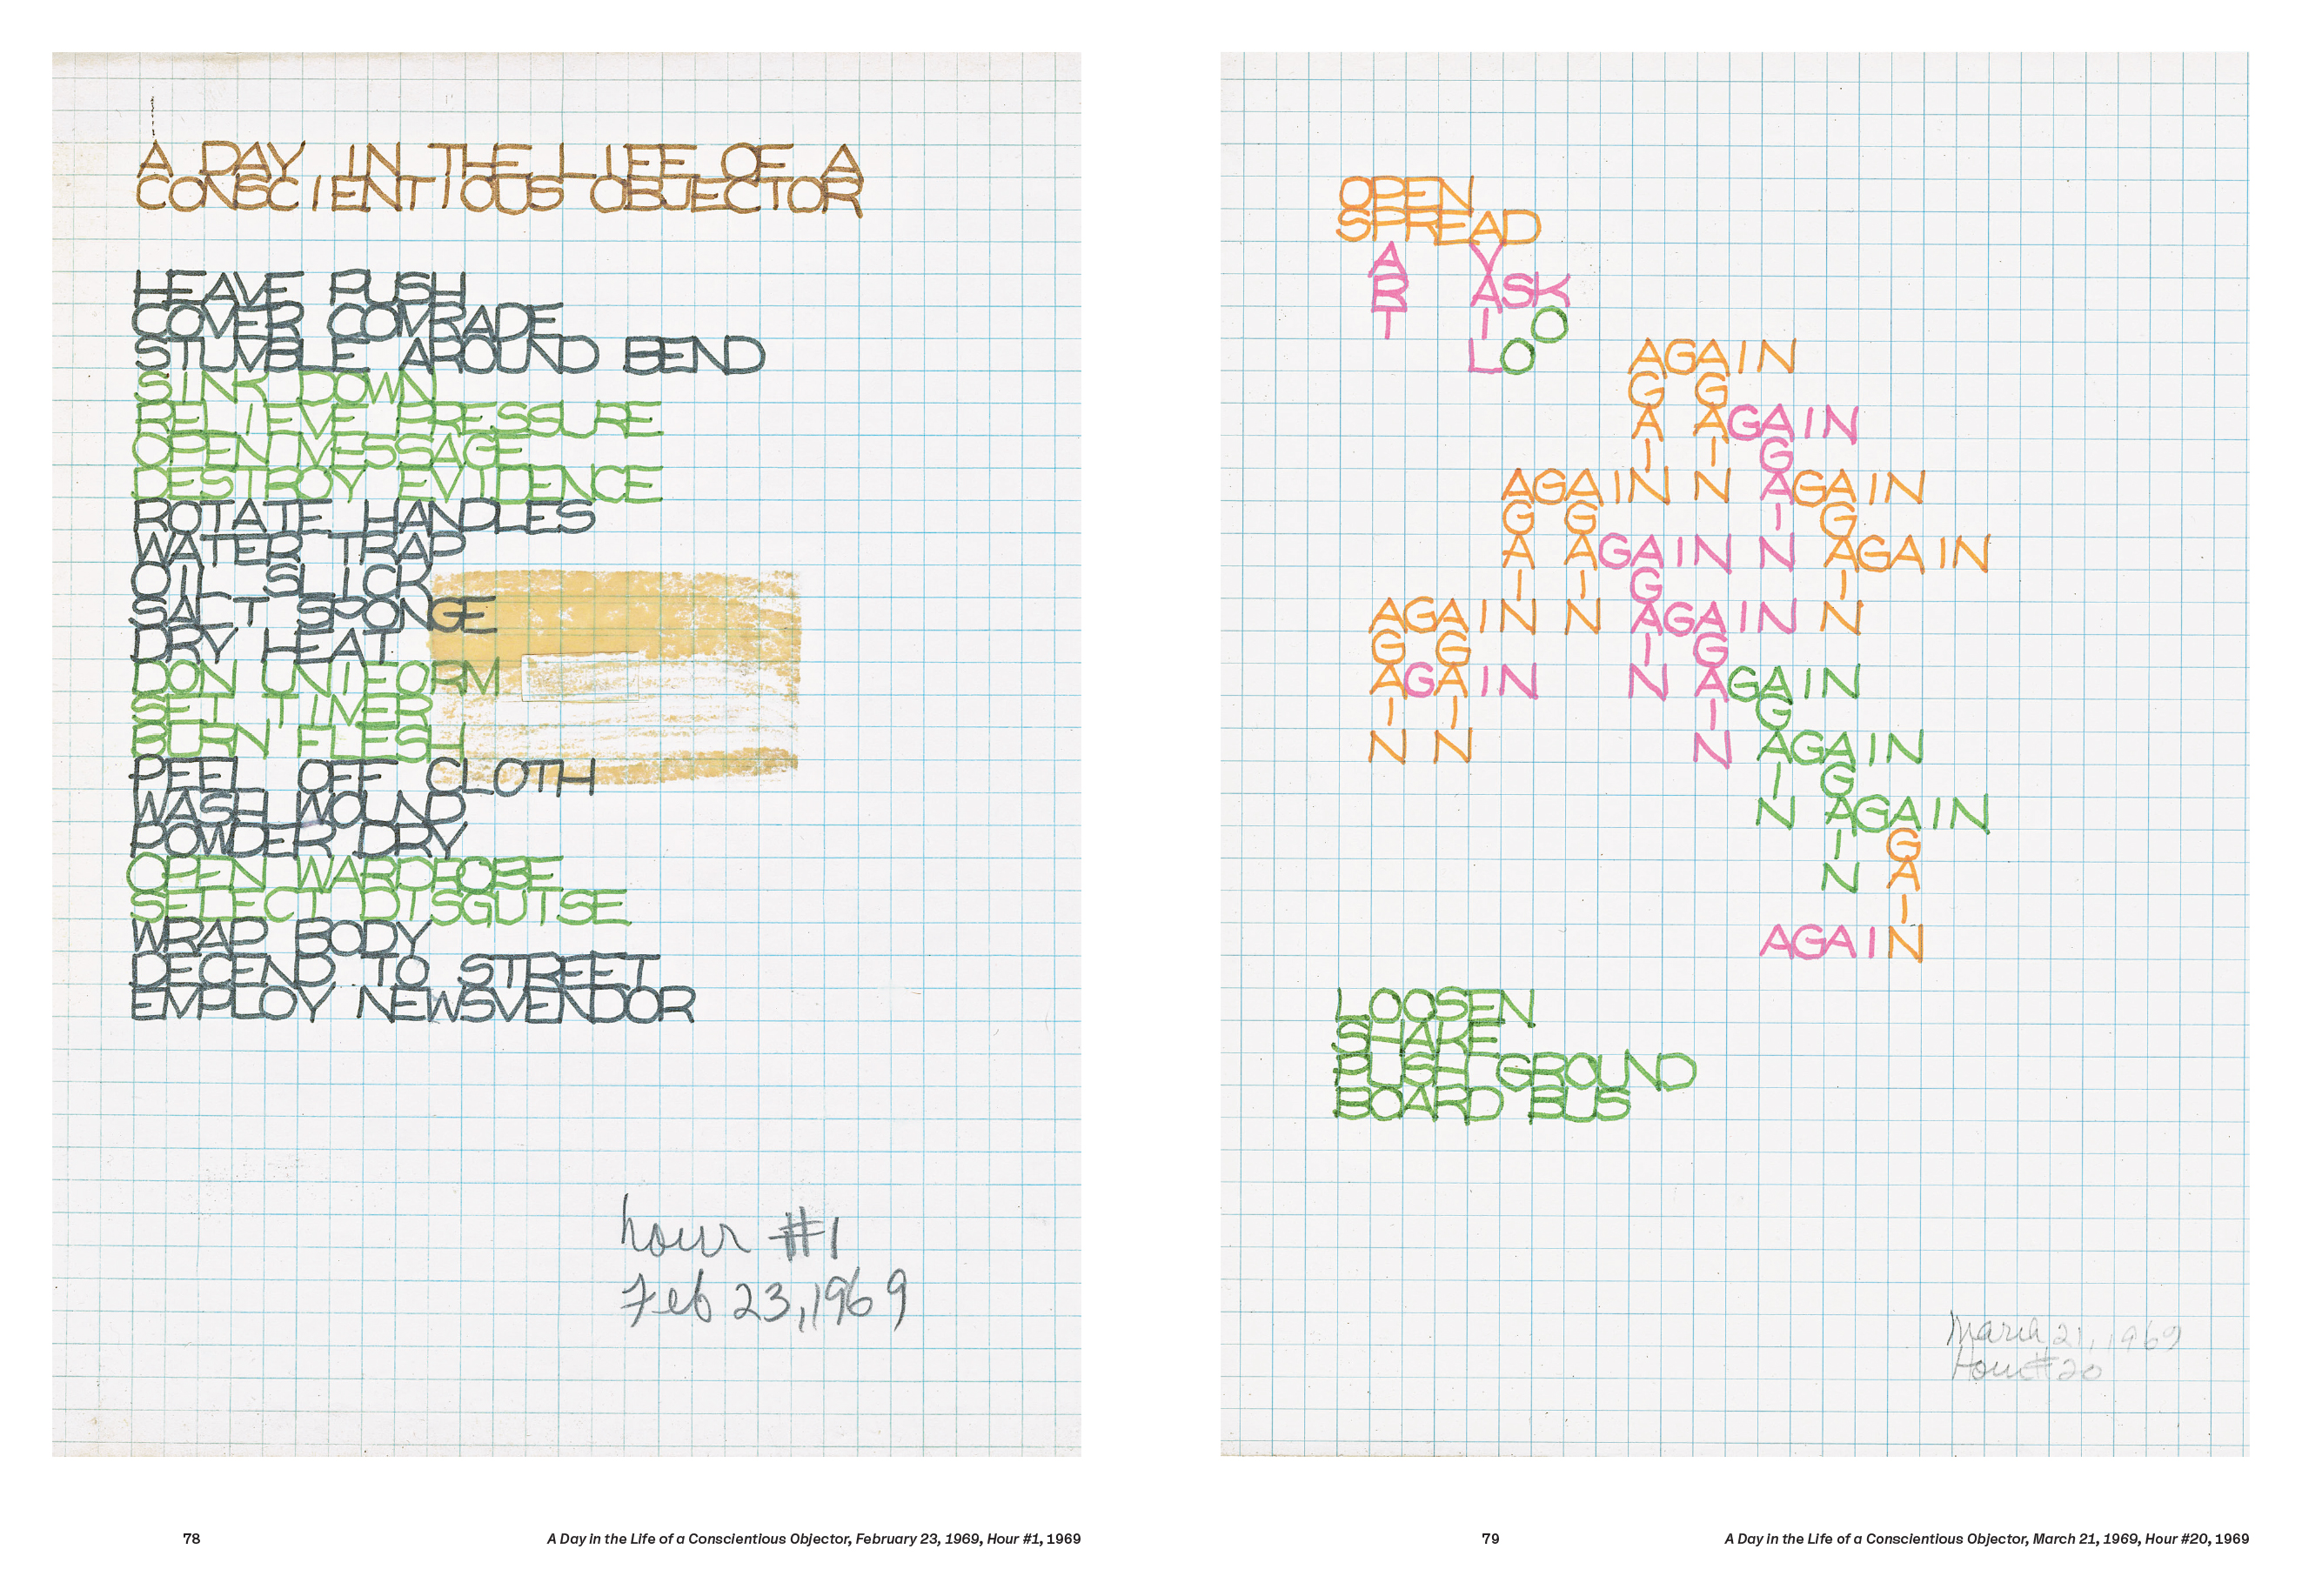 A DAY IN THE LIFE OF A
CONSCIENTIOUS OBJECTOR
HEAVE PUSH
COVER COMRADE
STUMBLE AROUND BEND
SINK DOWN
RELIEVE PRESSURE
OPEN MESSAGE
DESTROY EVIDENCE
ROTATE HANDLES
WATER TRAP
OIL SLICK
SALT SPONGE
DRY HEAT
DON UNIFORM
SET TIMER
BURN FLESH
PEEL OFF CLOTH
WASH WOUND
POWDER DRY
OPEN WARDROBE
SELECT DISGUISE
WRAP BODY
DECEND TO STREET
EMPLOY NEWSVENDOR
hour #1
Feb 23, 1969
78
A Day in the Life of a Conscientious Objector, February 23, 1969, Hour #1, 1969
OPEN
SPREAD
A Y
R ASK
T I O
LO AGAIN
G G
A AGAIN
I I G
AGAIN N AGAIN
G G I G
A AGAIN N AGAIN
I I G I
AGAIN N AGAIN N
G G I G
AGAIN N AGAIN
I I I G
N N N AGAIN
I G
N AGAIN
I G
N A
I
AGAIN
LOOSEN
SHARE
PUSH GROUND
BOARD BUS
March 21, 1969
Hour #20
79
A Day in the Life of a Conscientious Objector, March 21, 1969, Hour #20, 1969